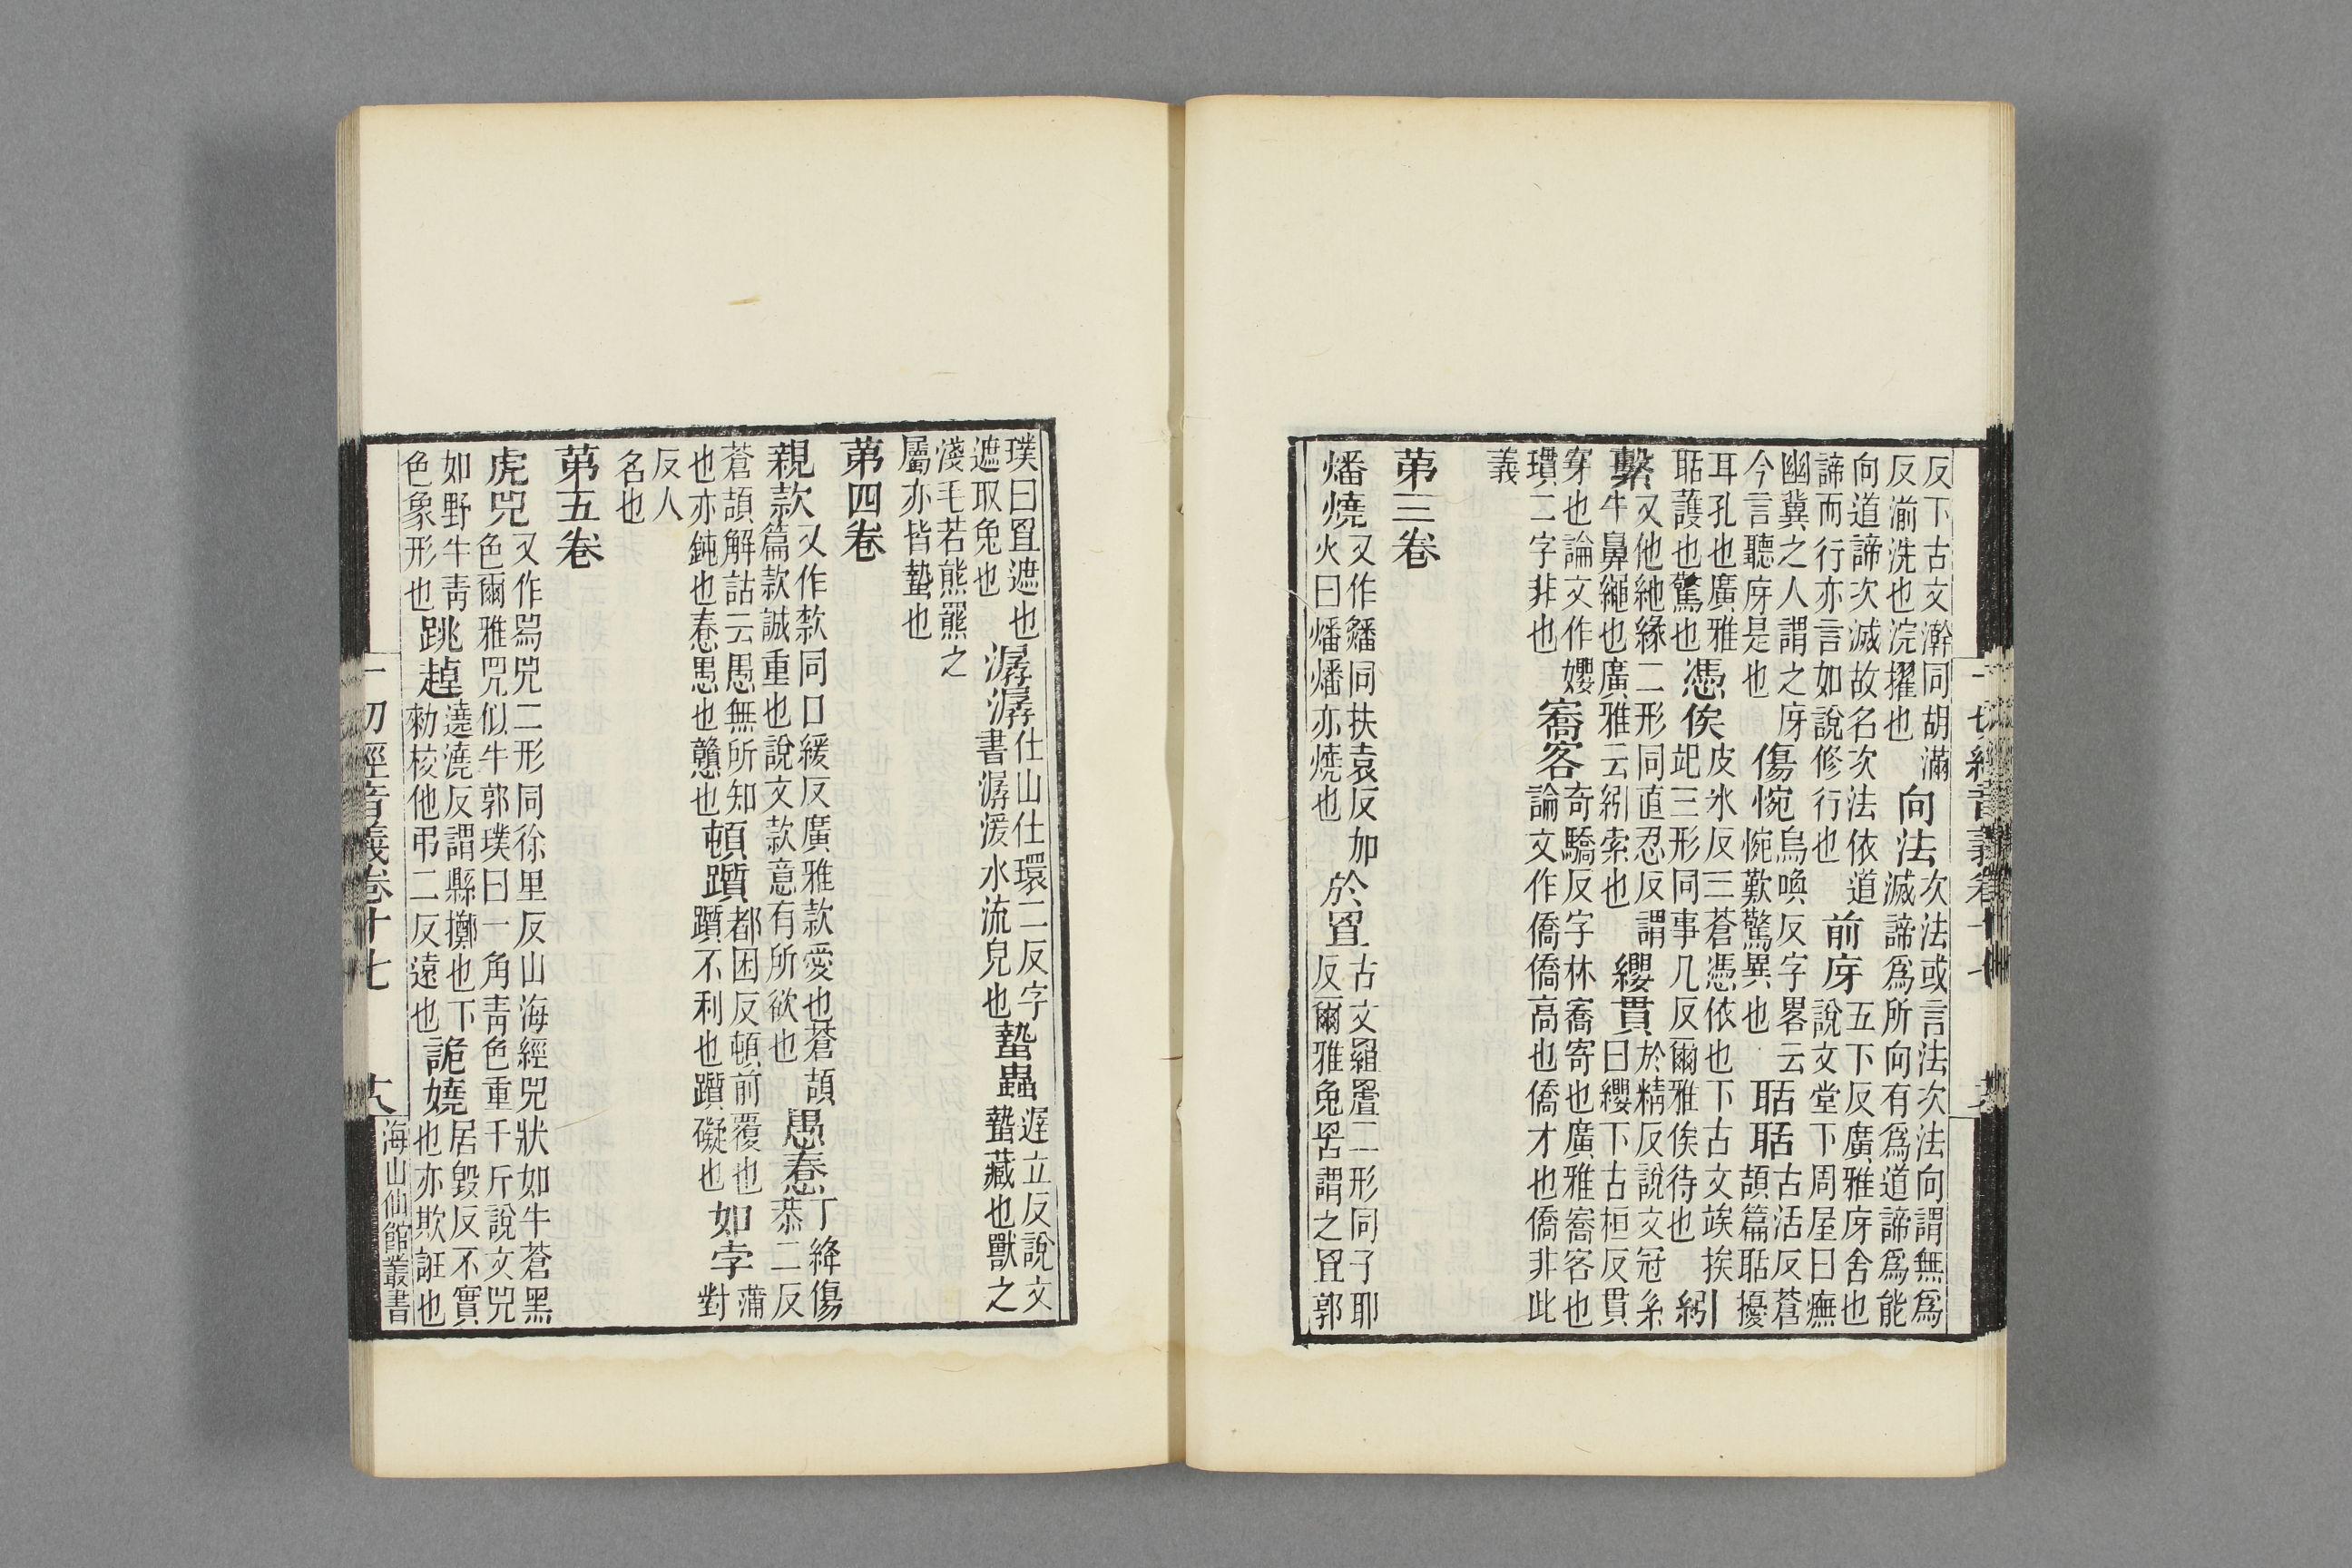 反下古文澣同胡滿
反湔洗也浣擢也
向法
次法或言法次法向謂無爲
滅諦爲所向有爲道諦爲能
向道諦次滅故名次法依道
諦而行亦言如說修行也
前庌
五下反廣雅庌舍也
說文堂下周屋曰廡
幽冀之人謂之庌
今言聽庌是也
傷惋
烏喚反字畧云
惋歎驚異也
聒聒
古活反蒼
頡篇聒擾
耳孔也廣雅
聒護也驚也
憑俟
皮氷反三蒼憑依也下古文竢挨
三形同事几反爾雅俟待也
紖
繫
又他紖緣二形同直忍反謂
牛鼻繩也廣雅云紖索也
纓貫
於精反說文冠系
曰纓下古桓反貫
穿也論文作㜲
瓚二字非也
客
奇驕反字林寄也廣雅客也
論文作僑僑高也僑才也僑非此
義
第三卷
燔燒
又作鐇同扶袁反加
火曰燔燔亦燒也
於罝
古文罝二形同子耶
反爾雅兔罟謂之罝郭
一切經音義卷十七
璞曰罝遮也
遮取兔也
潺潺
仕山仕環二反字
書潺湲水流皃也
蟄蟲
遟立反說文
蟄藏也獸之
淺毛若熊羆之
屬亦皆蟄也
第四卷
親款
又作欵同口緩反廣雅款愛也蒼頡
篇款誠重也說文款意有所欲也
愚惷
丁絳傷
恭二反
蒼頡解詁云愚無所知
也亦鈍也惷愚也戇也
頓躓
都困反頓前覆也
躓不利也躓礙也
如孛
蒲
對
反人
名也
第五卷
虎兕
又作舄兕二形同徐里反山海經兕狀如牛蒼黑
色爾雅兕似牛郭璞曰一角靑色重千斤說文兕
如野牛靑
色象形也
跳趠
澆澆反謂懸擲也下
勑校他弔二反遠也
詭嬈
居毀反不實
也亦欺誑也
一切經音義卷十七
十八
海山仙館叢書